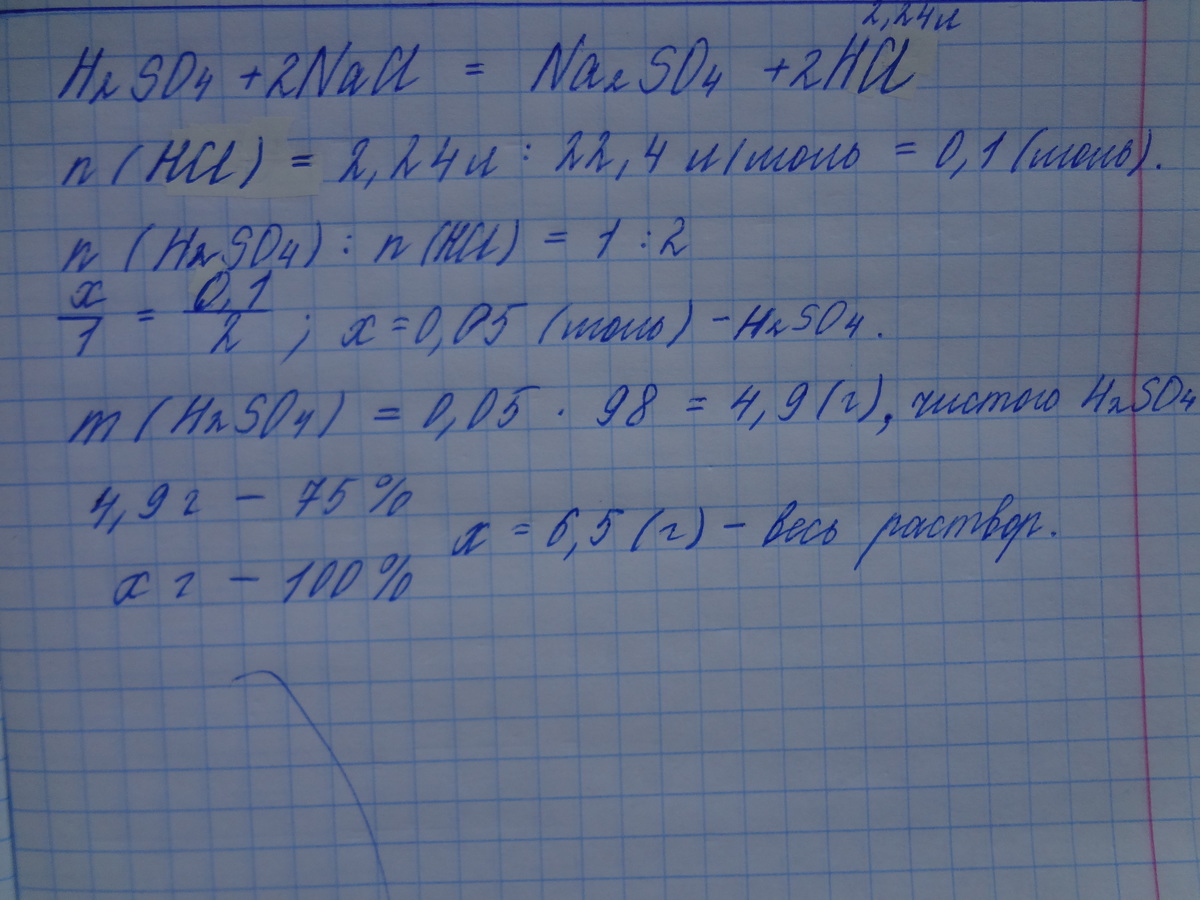 2,24л
H2SO4 +2NaCl = Na2SO4 +2HCl
n (HCl) = 2,24л : 22,4 л/моль = 0,1 (моль).
n (H2SO4) : n (HCl) = 1 : 2
x/1 = 0,1/2 ; x = 0,05 (моль) - H2SO4.
m (H2SO4) = 0,05 · 98 = 4,9 (г), чистого H2SO4
4,9 г - 75%
x = 6,5 (г) - весь раствор.
x г - 100%